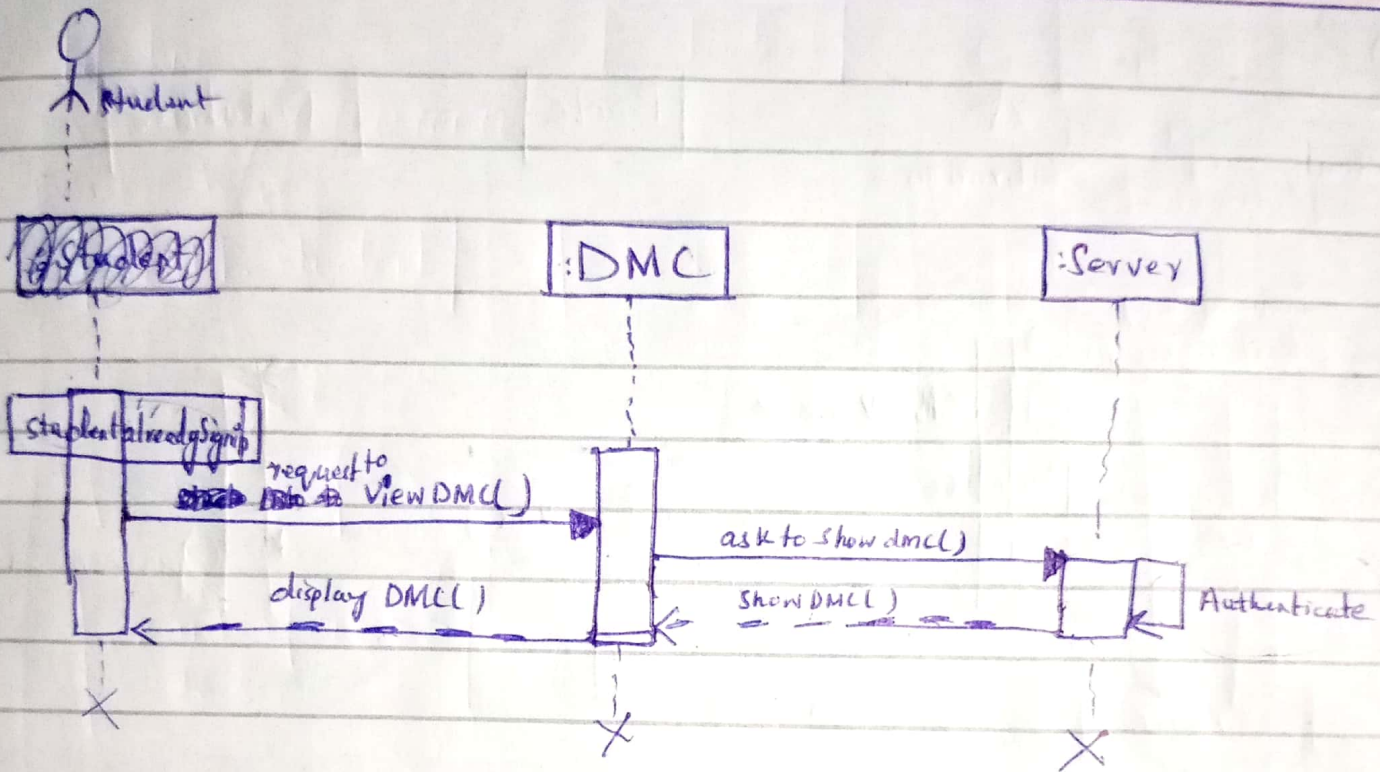 student
:Student
:DMC
:Server
student already Signip
request to
View DMC()
ask to show dmc()
display DMC()
show DMC()
Authenticate